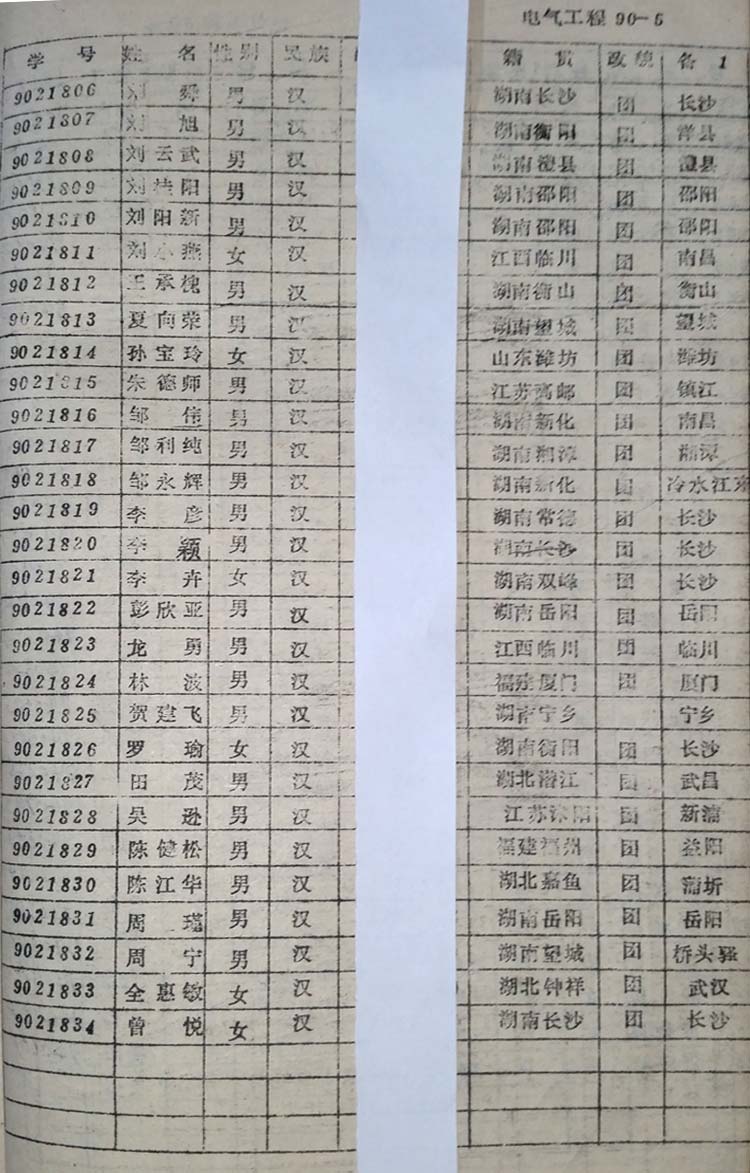 电气工程90-5
学号 姓名 性别 民族 籍贯 政貌 备 1
9021806 刘舜 男 汉 湖南长沙 团 长沙
9021807 刘旭 男 汉 湖南衡阳 团 洋县
9021808 刘云武 男 汉 湖南澧县 团 澧县
9021809 刘桂阳 男 汉 湖南邵阳 团 邵阳
9021810 刘阳新 男 汉 湖南邵阳 团 邵阳
9021811 刘小燕 女 汉 江西临川 团 南昌
9021812 王承槐 男 汉 湖南衡山 团 衡山
9021813 夏向荣 男 汉 湖南望城 团 望城
9021814 孙宝玲 女 汉 山东潍坊 团 潍坊
9021815 朱德师 男 汉 江苏高邮 团 镇江
9021816 邹伟 男 汉 湖南新化 团 南昌
9021817 邹利纯 男 汉 湖南湘潭 团 湘潭
9021818 邹永辉 男 汉 湖南新化 团 冷水江东
9021819 李彦 男 汉 湖南常德 团 长沙
9021820 李颖 男 汉 湖南长沙 团 长沙
9021821 李卉 女 汉 湖南双峰 团 长沙
9021822 彭欣亚 男 汉 湖南岳阳 团 岳阳
9021823 龙勇 男 汉 江西临川 团 临川
9021824 林波 男 汉 福建厦门 团 厦门
9021825 贺建飞 男 汉 湖南宁乡 宁乡
9021826 罗瑜 女 汉 湖南衡阳 团 长沙
9021827 田茂 男 汉 湖北潜江 团 武昌
9021828 吴逊 男 汉 江苏沭阳 团 新浦
9021829 陈健松 男 汉 福建福州 团 益阳
9021830 陈江华 男 汉 湖北嘉鱼 团 蒲圻
9021831 周瑾 男 汉 湖南岳阳 团 岳阳
9021832 周宁 男 汉 湖南望城 团 桥头驿
9021833 全惠敏 女 汉 湖北钟祥 团 武汉
9021834 曾悦 女 汉 湖南长沙 团 长沙